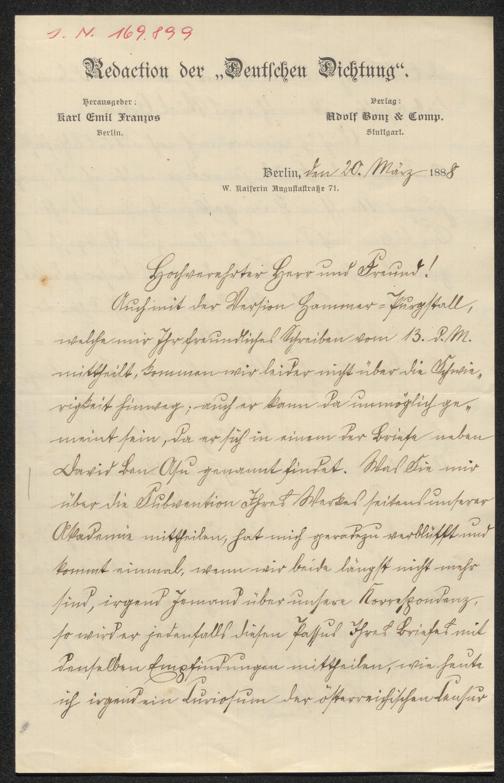 J. N. 169.899
Redaction der „Deutschen Dichtung“.
Herausgeber:
Karl Emil Franzos
Berlin.
Verlag:
Adolf Bonz & Comp.
Stuttgart.
Berlin, den 20. März 1888
W. Kaiserin Augustastraße 71.
Hochverehrter Herr und Freund!
Auch mit der Version Hammer-Purgstall,
welche mir Ihr freundliches Schreiben vom 13. d. M.
mittheilt, kommen wir leider nicht über die Schwie-
rigkeit hinweg; auch er kann da unmöglich ge-
meint sein, da er sich in einem der Briefe neben
David Ben genannt findet. Was Sie mir
über die Subvention Ihres Werkes seitens unserer
Akademie mittheilen, hat mich geradezu verblüfft und
kommt einmal, wenn wir beide längst nicht mehr
sind, irgend Jemand über unsere Korrespondenz,
so wird er jedenfalls diesen Passus Ihres Briefes mit
denselben Empfindungen mittheilen, wie heute
ich irgend ein Curiosum der österreichischen Censur